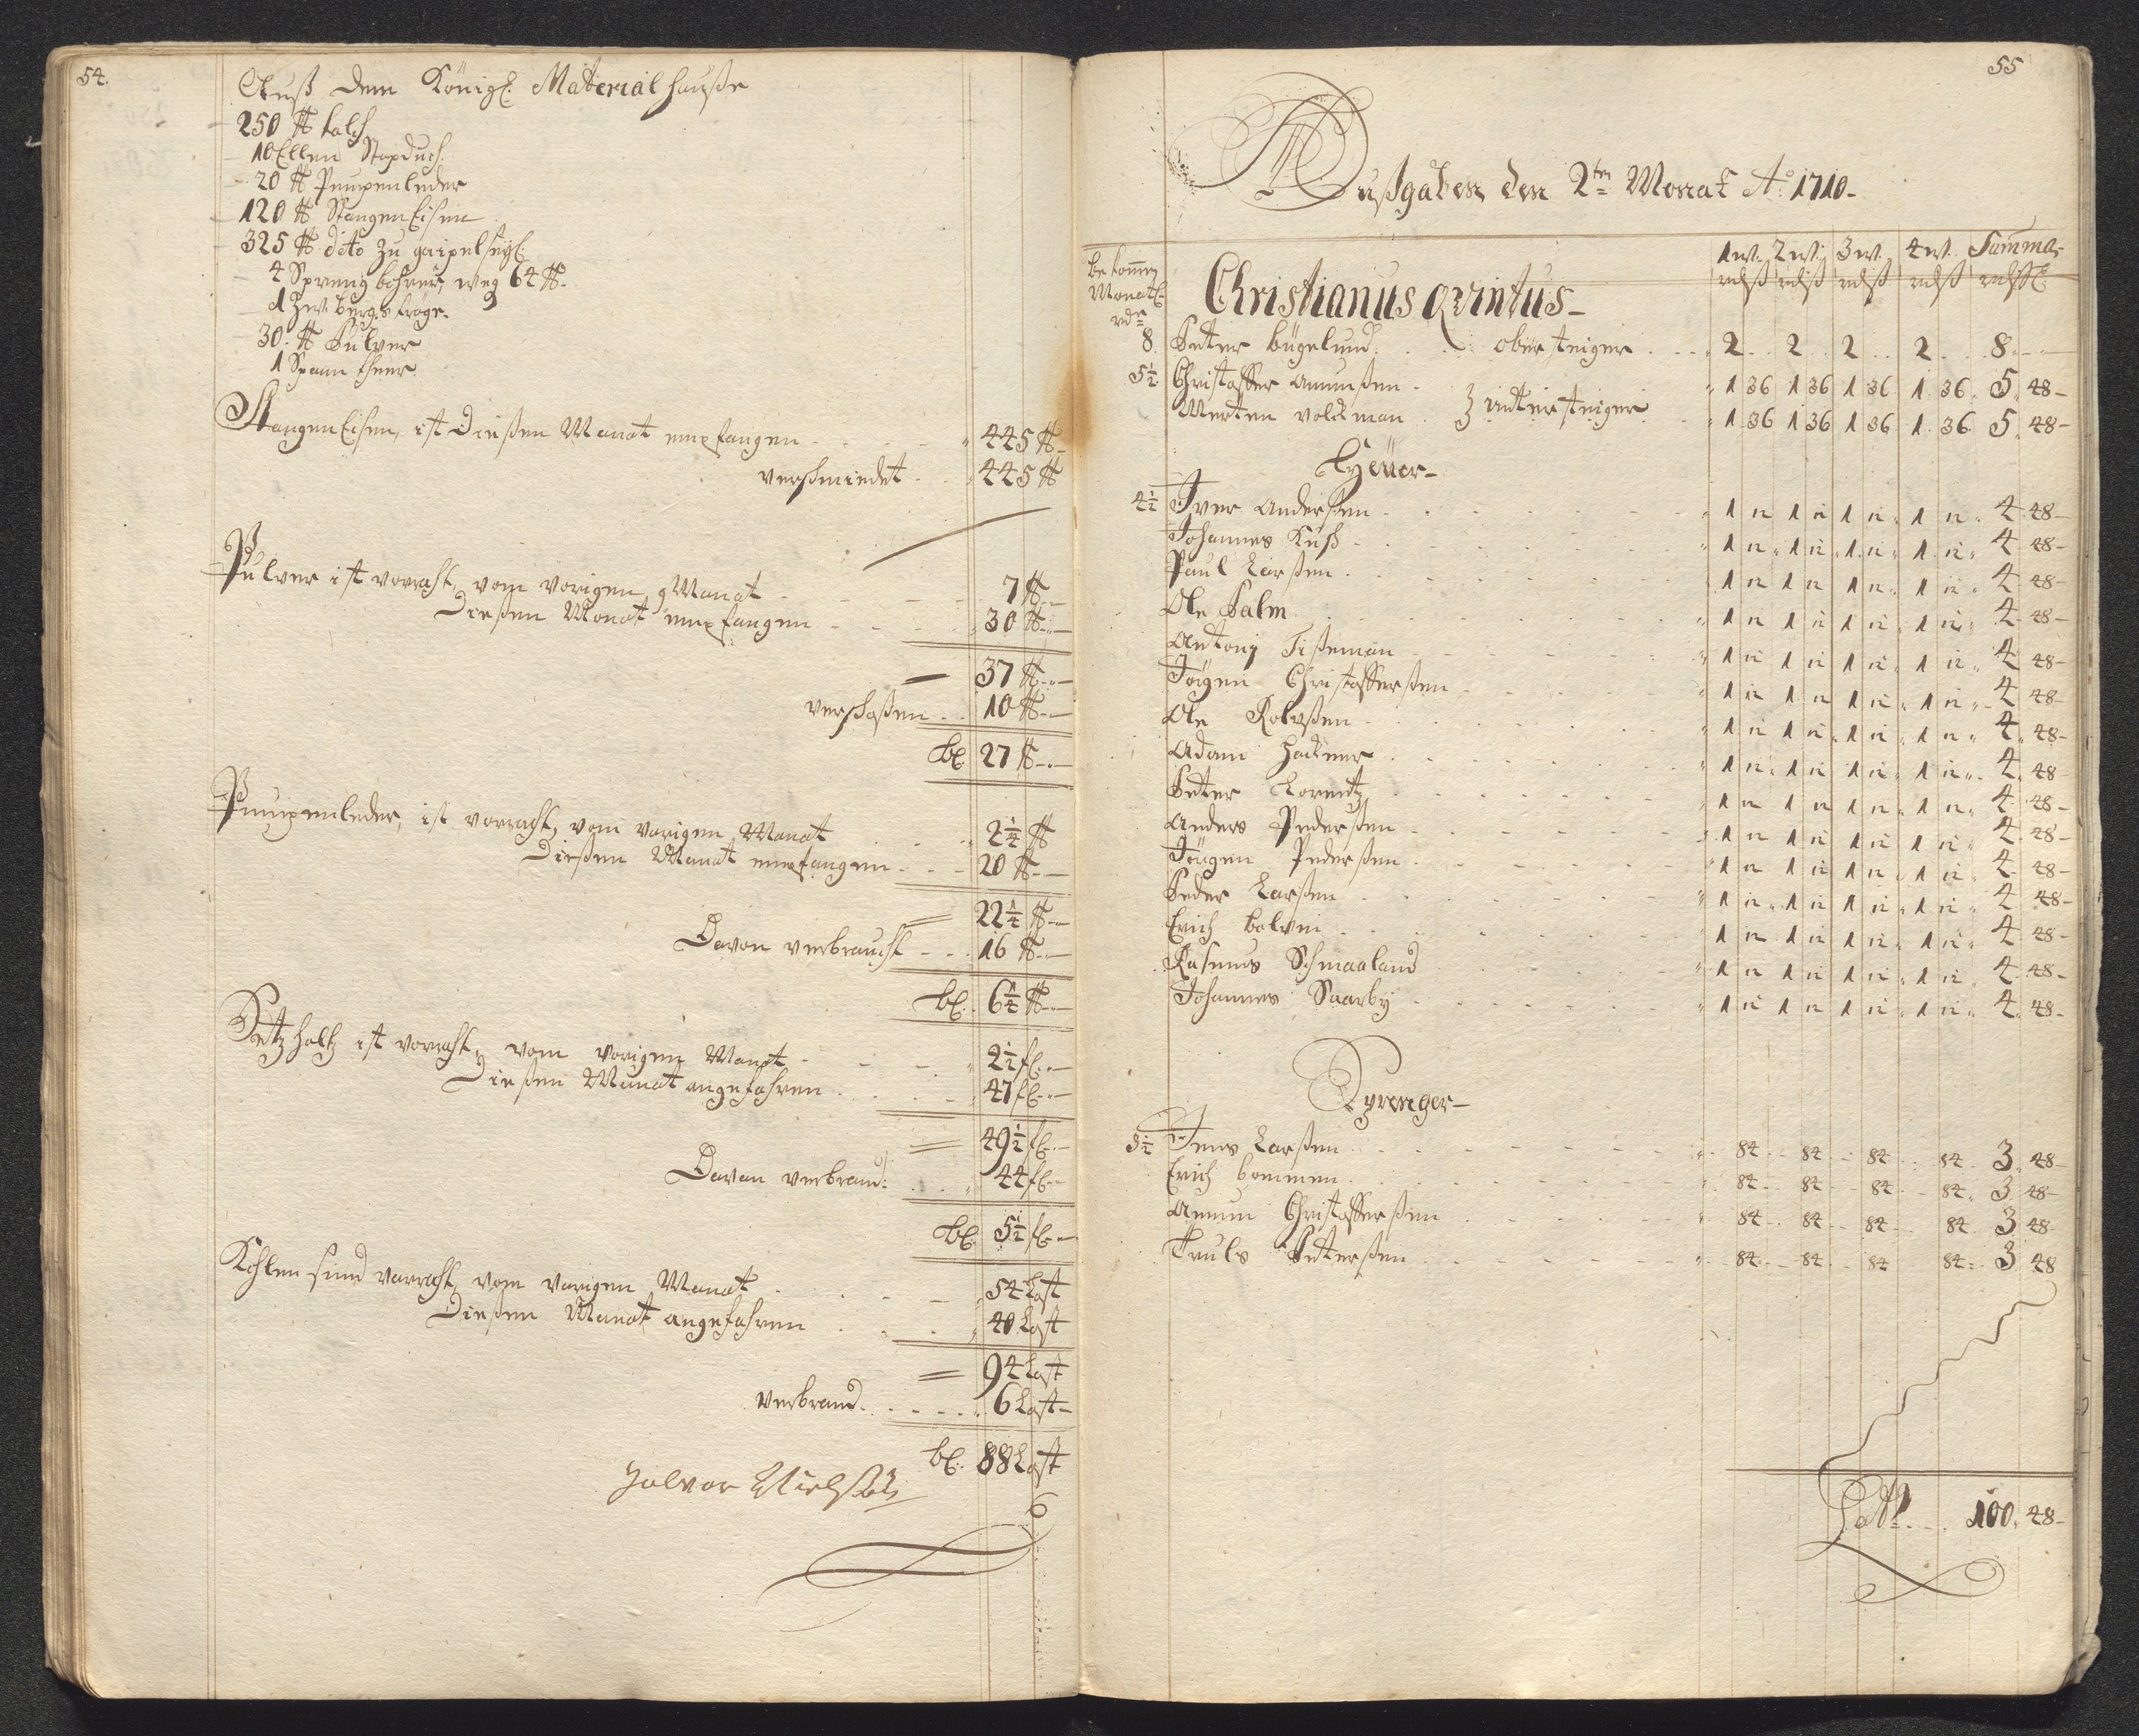 54.
Auß dem Königl: Material hauße
250 ℔ talch
10 Ellen Stopduch
20 ℔ Pumpenleder
120 ℔ Stangen Eisen
325 ℔ dito zu gaipel
4 Spreng bohrer, weg 64 ℔
1
30 ℔ Pulver
1 Spann theer
Stangen Eisen, ist dießen Monat empfangen 445 ℔
verschmiedet 445 ℔
Pulver ist vorraht, vom vorigen Monat 7 ℔
Dießen Monat empfangen 30 ℔
37 ℔
verschoßen 10 ℔
bl. 27 ℔
Pumpenleder, ist vorraht, vom vorigen Monat 2 1/4 ℔
Dießen Monat empfangen 20 ℔
22 1/4 ℔
Davon verbraucht 16 ℔
bl. 6 1/4 ℔
Setzholtz ist vorraht, vom vorigen Monat 2 1/2 fl.
Dießen Monat angefahren 47 fl.
49 1/2 fl.
Davon verbrand 44 fl.
bl. 5 1/2 fl.
Kohlen sind vorraht, vom vorigen Monat 54 Last
Dießen Monat angefahren 40 Last
94 Last
verbrand 6 Last
bl. 88 Last
Halvor Nielßen
55
Außgaben den 2ten Monat Ao: 1710
bekommen Monatl. rdr
1 w. 2 w. 3 w. 4 w. Summa
rdß rdß rdß rdß rdß
Christianus qvintus
8. Peter bügelund ober steiger 2 2 2 2 8
5 1/2 Christoffer Amunßen 1 36 1 36 1 36 1 36 5 48
Merten volckman } unter steiger 1 36 1 36 1 36 1 36 5 48
Heuer
4 1/2 Iver Anderßen 1 12 1 12 1 12 1 12 4 48
Johannes Kuß 1 12 1 12 1 12 1 12 4 48
Paul Larßen 1 12 1 12 1 12 1 12 4 48
Ole Palm 1 12 1 12 1 12 1 12 4 48
Antony Tißeman 1 12 1 12 1 12 1 12 4 48
Jörgen Christofferßen 1 12 1 12 1 12 1 12 4 48
Ole Rolvßen 1 12 1 12 1 12 1 12 4 48
Adam Hackner 1 12 1 12 1 12 1 12 4 48
Peter Lorentz 1 12 1 12 1 12 1 12 4 48
Anders Pederßen 1 12 1 12 1 12 1 12 4 48
Jörgen Pederßen 1 12 1 12 1 12 1 12 4 48
Peder Larßen 1 12 1 12 1 12 1 12 4 48
Erich bolvin 1 12 1 12 1 12 1 12 4 48
Rasmus Schmaaland 1 12 1 12 1 12 1 12 4 48
Johannes Saarby 1 12 1 12 1 12 1 12 4 48
Sprenger
3 1/2 Jens Larßen 84 84 84 84 3 48
Erich bommen 84 84 84 84 3 48
Amun Christofferßen 84 84 84 84 3 48
Truls Peterßen 84 84 84 84 3 48
Latt 100 48